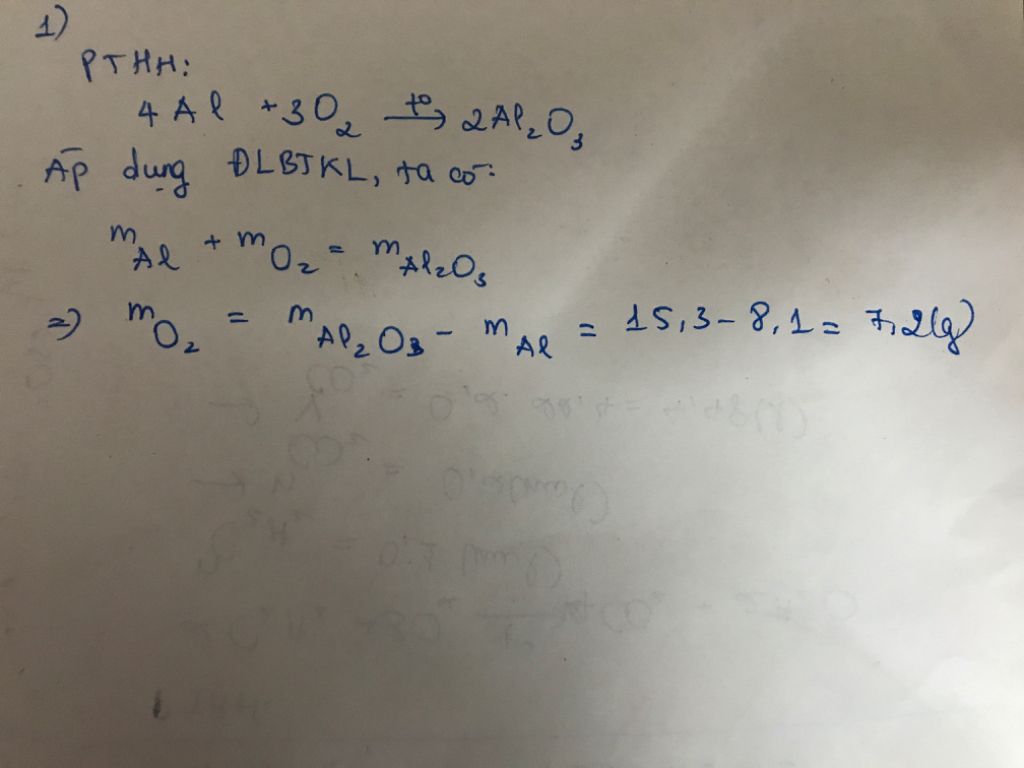 1)
PTHH:
4Al + 3O₂ →(t°) 2Al₂O₃
Áp dụng ĐLBTKL, ta có:
m_Al + m_O₂ = m_Al₂O₃
=> m_O₂ = m_Al₂O₃ - m_Al = 15,3 - 8,1 = 7,2(g)